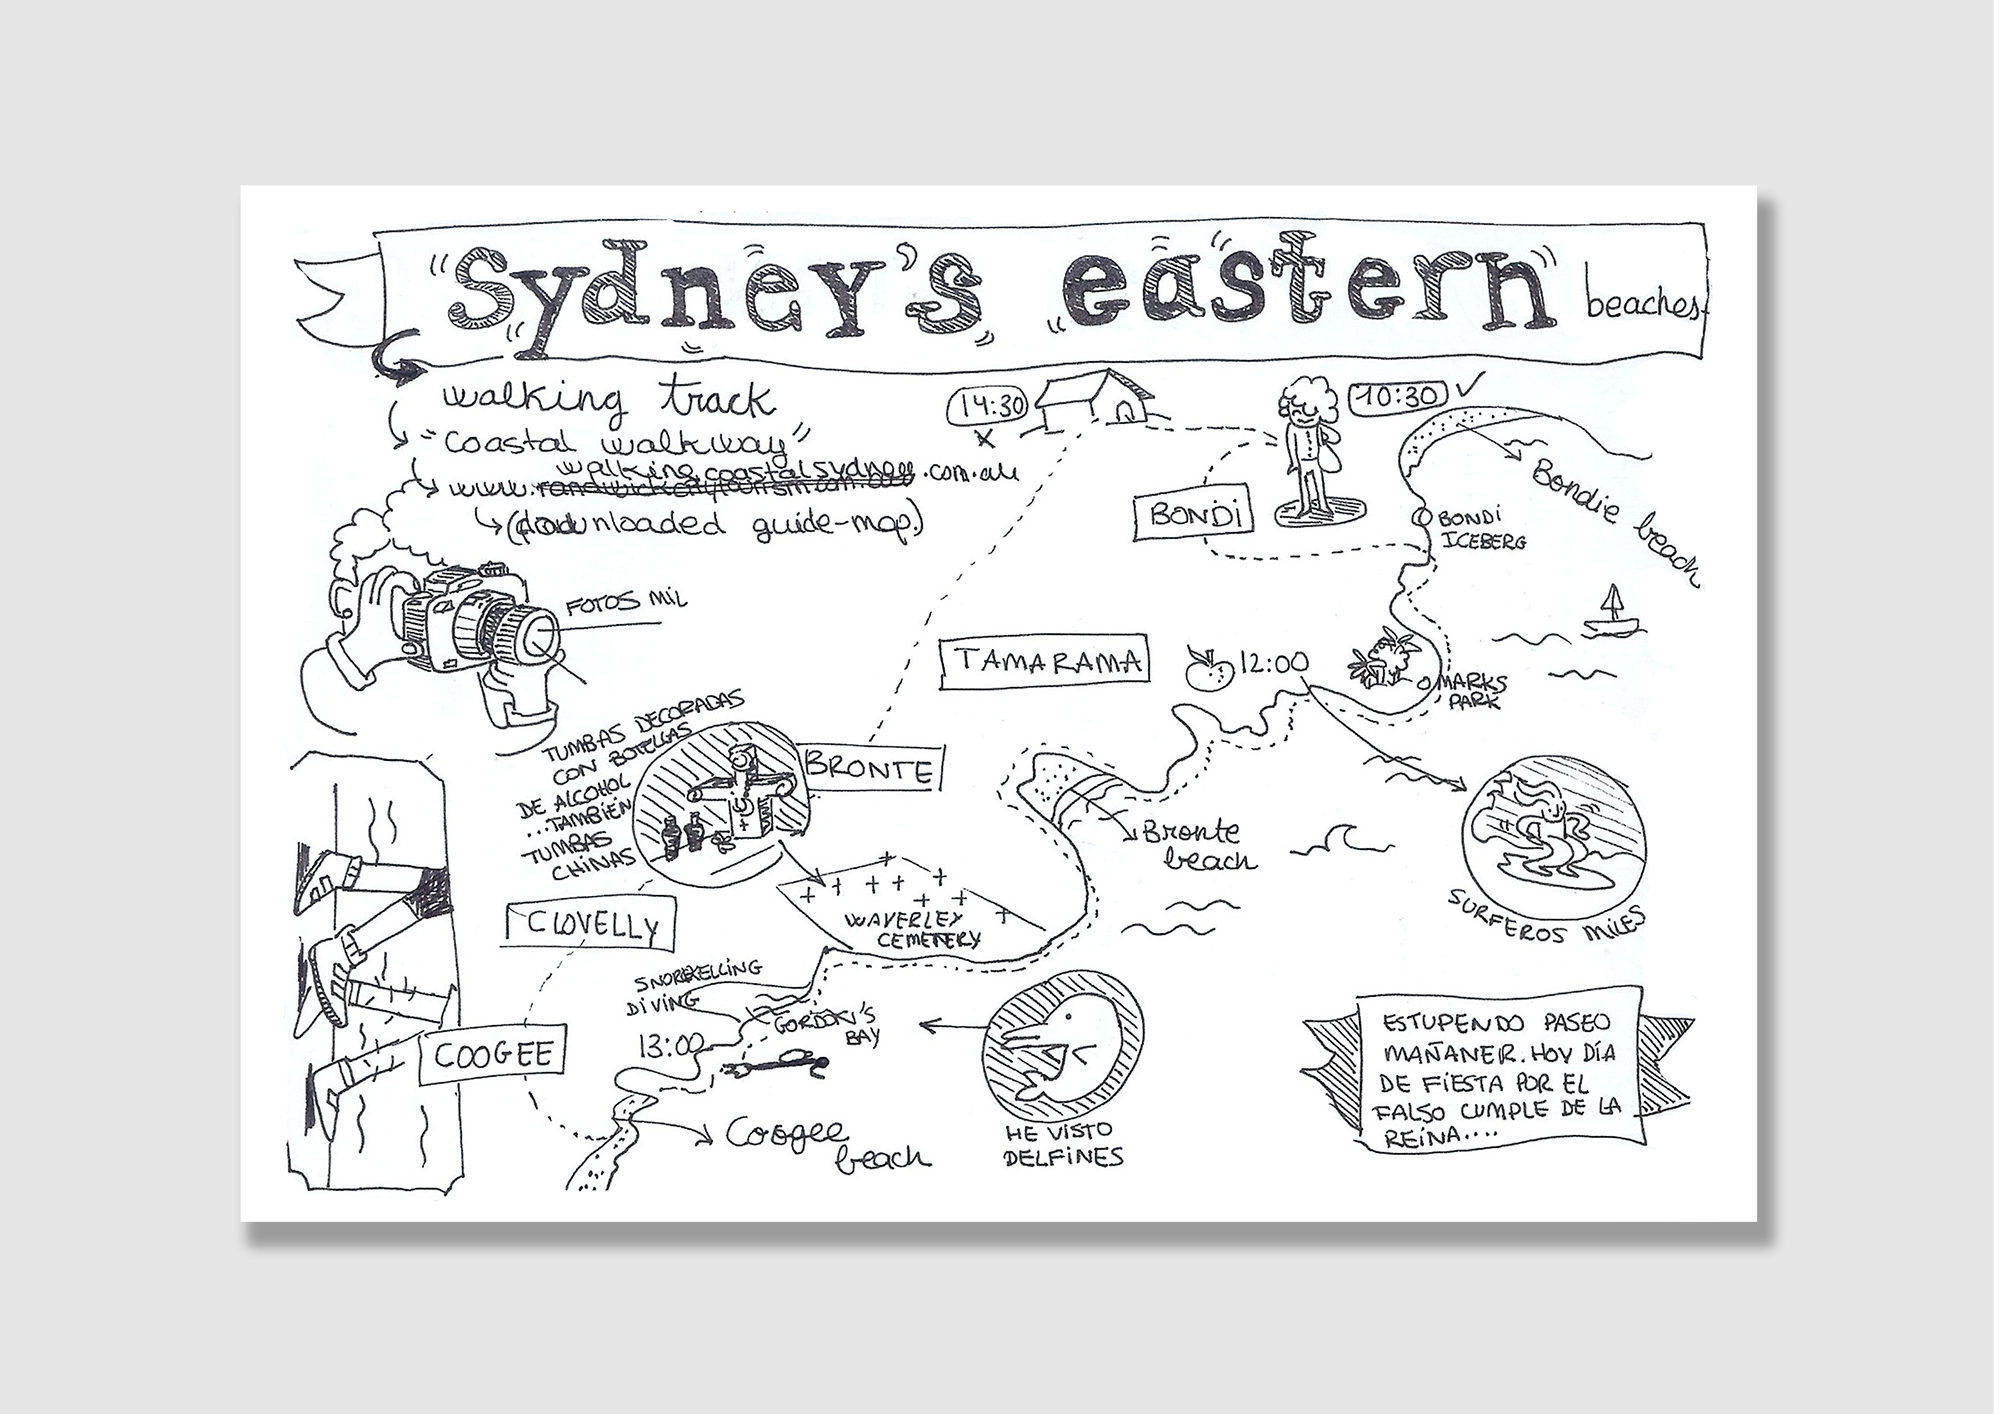 Sydney's eastern beaches
walking track
"coastal walkway"
walking.coastalsydney.com.au
www.
(downloaded guide-map.)
14:30
10:30
BONDI
Bondie beach
BONDI
ICEBERG
FOTOS MIL
TAMARAMA
12:00
MARKS
PARK
TUMBAS DECORADAS
CON BOTELLAS
DE ALCOHOL
...TAMBIÉN
TUMBAS
CHINAS
BRONTE
Bronte
beach
SURFEROS MILES
WAVERLEY
CEMETERY
CLOVELLY
SNORKELLING
DIVING
GORDON'S
BAY
13:00
COOGEE
Coogee
beach
HE VISTO
DELFINES
ESTUPENDO PASEO
MAÑANER. HOY DÍA
DE FIESTA POR EL
FALSO CUMPLE DE LA
REINA....